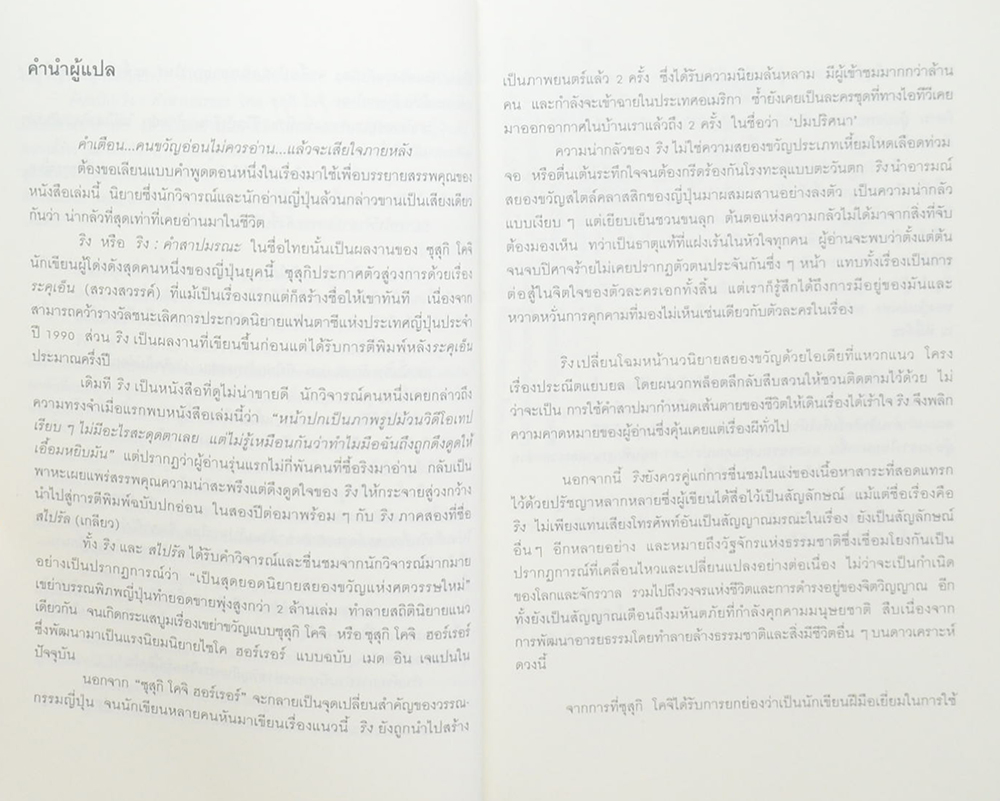 คำนำผู้แปล
คำเตือน...คนขวัญอ่อนไม่ควรอ่าน...แล้วจะเสียใจภายหลัง
ต้องขอเลียนแบบคำพูดตอนหนึ่งในเรื่องมาใช้เพื่อบรรยายสรรพคุณของ
หนังสือเล่มนี้ นิยายซึ่งนักวิจารณ์และนักอ่านญี่ปุ่นล้วนกล่าวขานเป็นเสียงเดียว
กันว่า น่ากลัวที่สุดเท่าที่เคยอ่านมาในชีวิต
ริง หรือ ริง : คำสาปมรณะ ในชื่อไทยนั้นเป็นผลงานของ ซุสุกิ โคจิ
นักเขียนผู้โด่งดังสุดคนหนึ่งของญี่ปุ่นยุคนี้ ซุสุกิประกาศตัวสู่วงการด้วยเรื่อง
ระคุเอ็น (สรวงสวรรค์) ที่แม้เป็นเรื่องแรกแต่ก็สร้างชื่อให้เขาทันที เนื่องจาก
สามารถคว้ารางวัลชนะเลิศการประกวดนิยายแฟนตาซีแห่งประเทศญี่ปุ่นประจำ
ปี 1990 ส่วน ริง เป็นผลงานที่เขียนขึ้นก่อนแต่ได้รับการตีพิมพ์หลังระคุเอ็น
ประมาณครึ่งปี
เดิมที ริง เป็นหนังสือที่ดูไม่น่าขายดี นักวิจารณ์คนหนึ่งเคยกล่าวถึง
ความทรงจำเมื่อแรกพบหนังสือเล่มนี้ว่า "หน้าปกเป็นภาพรูปม้วนวิดีโอเทป
เรียบ ๆ ไม่มีอะไรสะดุดตาเลย แต่ไม่รู้เหมือนกันว่าทำไมมือฉันถึงถูกดึงดูดให้
เอื้อมหยิบมัน" แต่ปรากฏว่าผู้อ่านรุ่นแรกไม่กี่พันคนที่ซื้อริงมาอ่าน กลับเป็น
พาหะเผยแพร่สรรพคุณความน่าสะพรึงแต่ดึงดูดใจของ ริง ให้กระจายสู่วงกว้าง
นำไปสู่การตีพิมพ์ฉบับปกอ่อน ในสองปีต่อมาพร้อม ๆ กับ ริง ภาคสองที่ชื่อ
สไปรัล (เกลียว)
ทั้ง ริง และ สไปรัล ได้รับคำวิจารณ์และชื่นชมจากนักวิจารณ์มากมาย
อย่างเป็นปรากฏการณ์ว่า "เป็นสุดยอดนิยายสยองขวัญแห่งศตวรรษใหม่"
เขย่าบรรณพิภพญี่ปุ่นทำยอดขายพุ่งสูงกว่า 2 ล้านเล่ม ทำลายสถิตินิยายแนว
เดียวกัน จนเกิดกระแสบูมเรื่องเขย่าขวัญแบบซุสุกิ โคจิ หรือ ซุสุกิ โคจิ ฮอร์เรอร์
ซึ่งพัฒนามาเป็นแรงนิยมนิยายไซโค ฮอร์เรอร์ แบบฉบับ เมด อิน เจแปนใน
ปัจจุบัน
นอกจาก "ซุสุกิ โคจิ ฮอร์เรอร์" จะกลายเป็นจุดเปลี่ยนสำคัญของวรรณ-
กรรมญี่ปุ่น จนนักเขียนหลายคนหันมาเขียนเรื่องแนวนี้ ริง ยังถูกนำไปสร้าง
เป็นภาพยนตร์แล้ว 2 ครั้ง ซึ่งได้รับความนิยมล้นหลาม มีผู้เข้าชมมากกว่าล้าน
คน และกำลังจะเข้าฉายในประเทศอเมริกา ซ้ำยังเคยเป็นละครชุดที่ทางไอทีวีเคย
มาออกอากาศในบ้านเราแล้วถึง 2 ครั้ง ในชื่อว่า 'ปมปริศนา'
ความน่ากลัวของ ริง ไม่ใช่ความสยองขวัญประเภทเหี้ยมโหดเลือดท่วม
จอ หรือตื่นเต้นระทึกใจจนต้องกรีดร้องกันโรงทะลุแบบตะวันตก ริง นำอารมณ์
สยองขวัญสไตล์คลาสสิกของญี่ปุ่นมาผสมผสานอย่างลงตัว เป็นความน่ากลัว
แบบเงียบ ๆ แต่เยียบเย็นชวนขนลุก ต้นตอแห่งความกลัวไม่ได้มาจากสิ่งที่จับ
ต้องมองเห็น ทว่าเป็นธาตุแท้ที่แฝงเร้นในหัวใจทุกคน ผู้อ่านจะพบว่าตั้งแต่ต้น
จนจบปีศาจร้ายไม่เคยปรากฏตัวตนประจันกันซึ่ง ๆ หน้า แทบทั้งเรื่องเป็นการ
ต่อสู้ในจิตใจของตัวละครเอกทั้งสิ้น แต่เราก็รู้สึกได้ถึงการมีอยู่ของมันและ
หวาดหวั่นการคุกคามที่มองไม่เห็นเช่นเดียวกับตัวละครในเรื่อง
ริง เปลี่ยนโฉมหน้านวนิยายสยองขวัญด้วยไอเดียที่แหวกแนว โครง
เรื่องประณีตแยบยล โดยผนวกพล็อตลึกลับสืบสวนให้ชวนติดตามไว้ด้วย ไม่
ว่าจะเป็น การใช้คำสาปมากำหนดเส้นตายของชีวิตให้เดินเรื่องได้เร้าใจ ริง จึงพลิก
ความคาดหมายของผู้อ่านซึ่งคุ้นเคยแต่เรื่องผีทั่วไป
นอกจากนี้ ริงยังควรคู่แก่การชื่นชมในแง่ของเนื้อหาสาระที่สอดแทรก
ไว้ด้วยปรัชญาหลากหลายซึ่งผู้เขียนได้สื่อไว้เป็นสัญลักษณ์ แม้แต่ชื่อเรื่องคือ
ริง ไม่เพียงแทนเสียงโทรศัพท์อันเป็นสัญญาณมรณะในเรื่อง ยังเป็นสัญลักษณ์
อื่นๆ อีกหลายอย่าง และหมายถึงวัฐจักรแห่งธรรมชาติซึ่งเชื่อมโยงกันเป็น
ปรากฏการณ์ที่เคลื่อนไหวและเปลี่ยนแปลงอย่างต่อเนื่อง ไม่ว่าจะเป็นกำเนิด
ของโลกและจักรวาล รวมไปถึงวงจรแห่งชีวิตและการดำรงอยู่ของจิตวิญญาณ อีก
ทั้งยังเป็นสัญญาณเตือนถึงมหันตภัยที่กำลังคุกคามมนุษยชาติ สืบเนื่องจาก
การพัฒนาอารยธรรมโดยทำลายล้างธรรมชาติและสิ่งมีชีวิตอื่น ๆ บนดาวเคราะห์
ดวงนี้
จากการที่ซุสุกิ โคจิได้รับการยกย่องว่าเป็นนักเขียนฝีมือเยี่ยมในการใช้